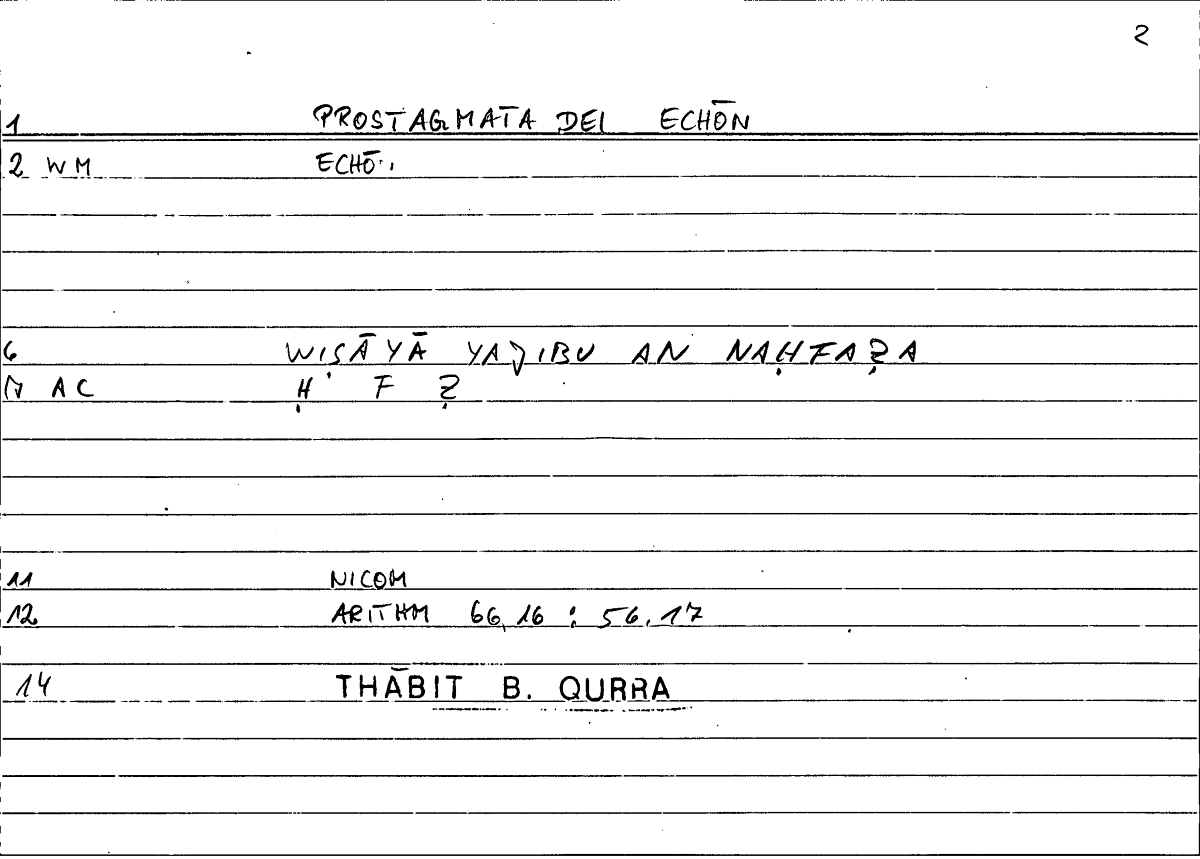 2
1 PROSTAGMATA DEI ECHŌN
2 WM ECHŌ
6 WIṢĀYĀ YAJIBU AN NAḤFAẒA
7 AC Ḥ F Ẓ
11 NICOM
12 ARITHM 66,16 : 56,17
14 THĀBIT B. QURRA